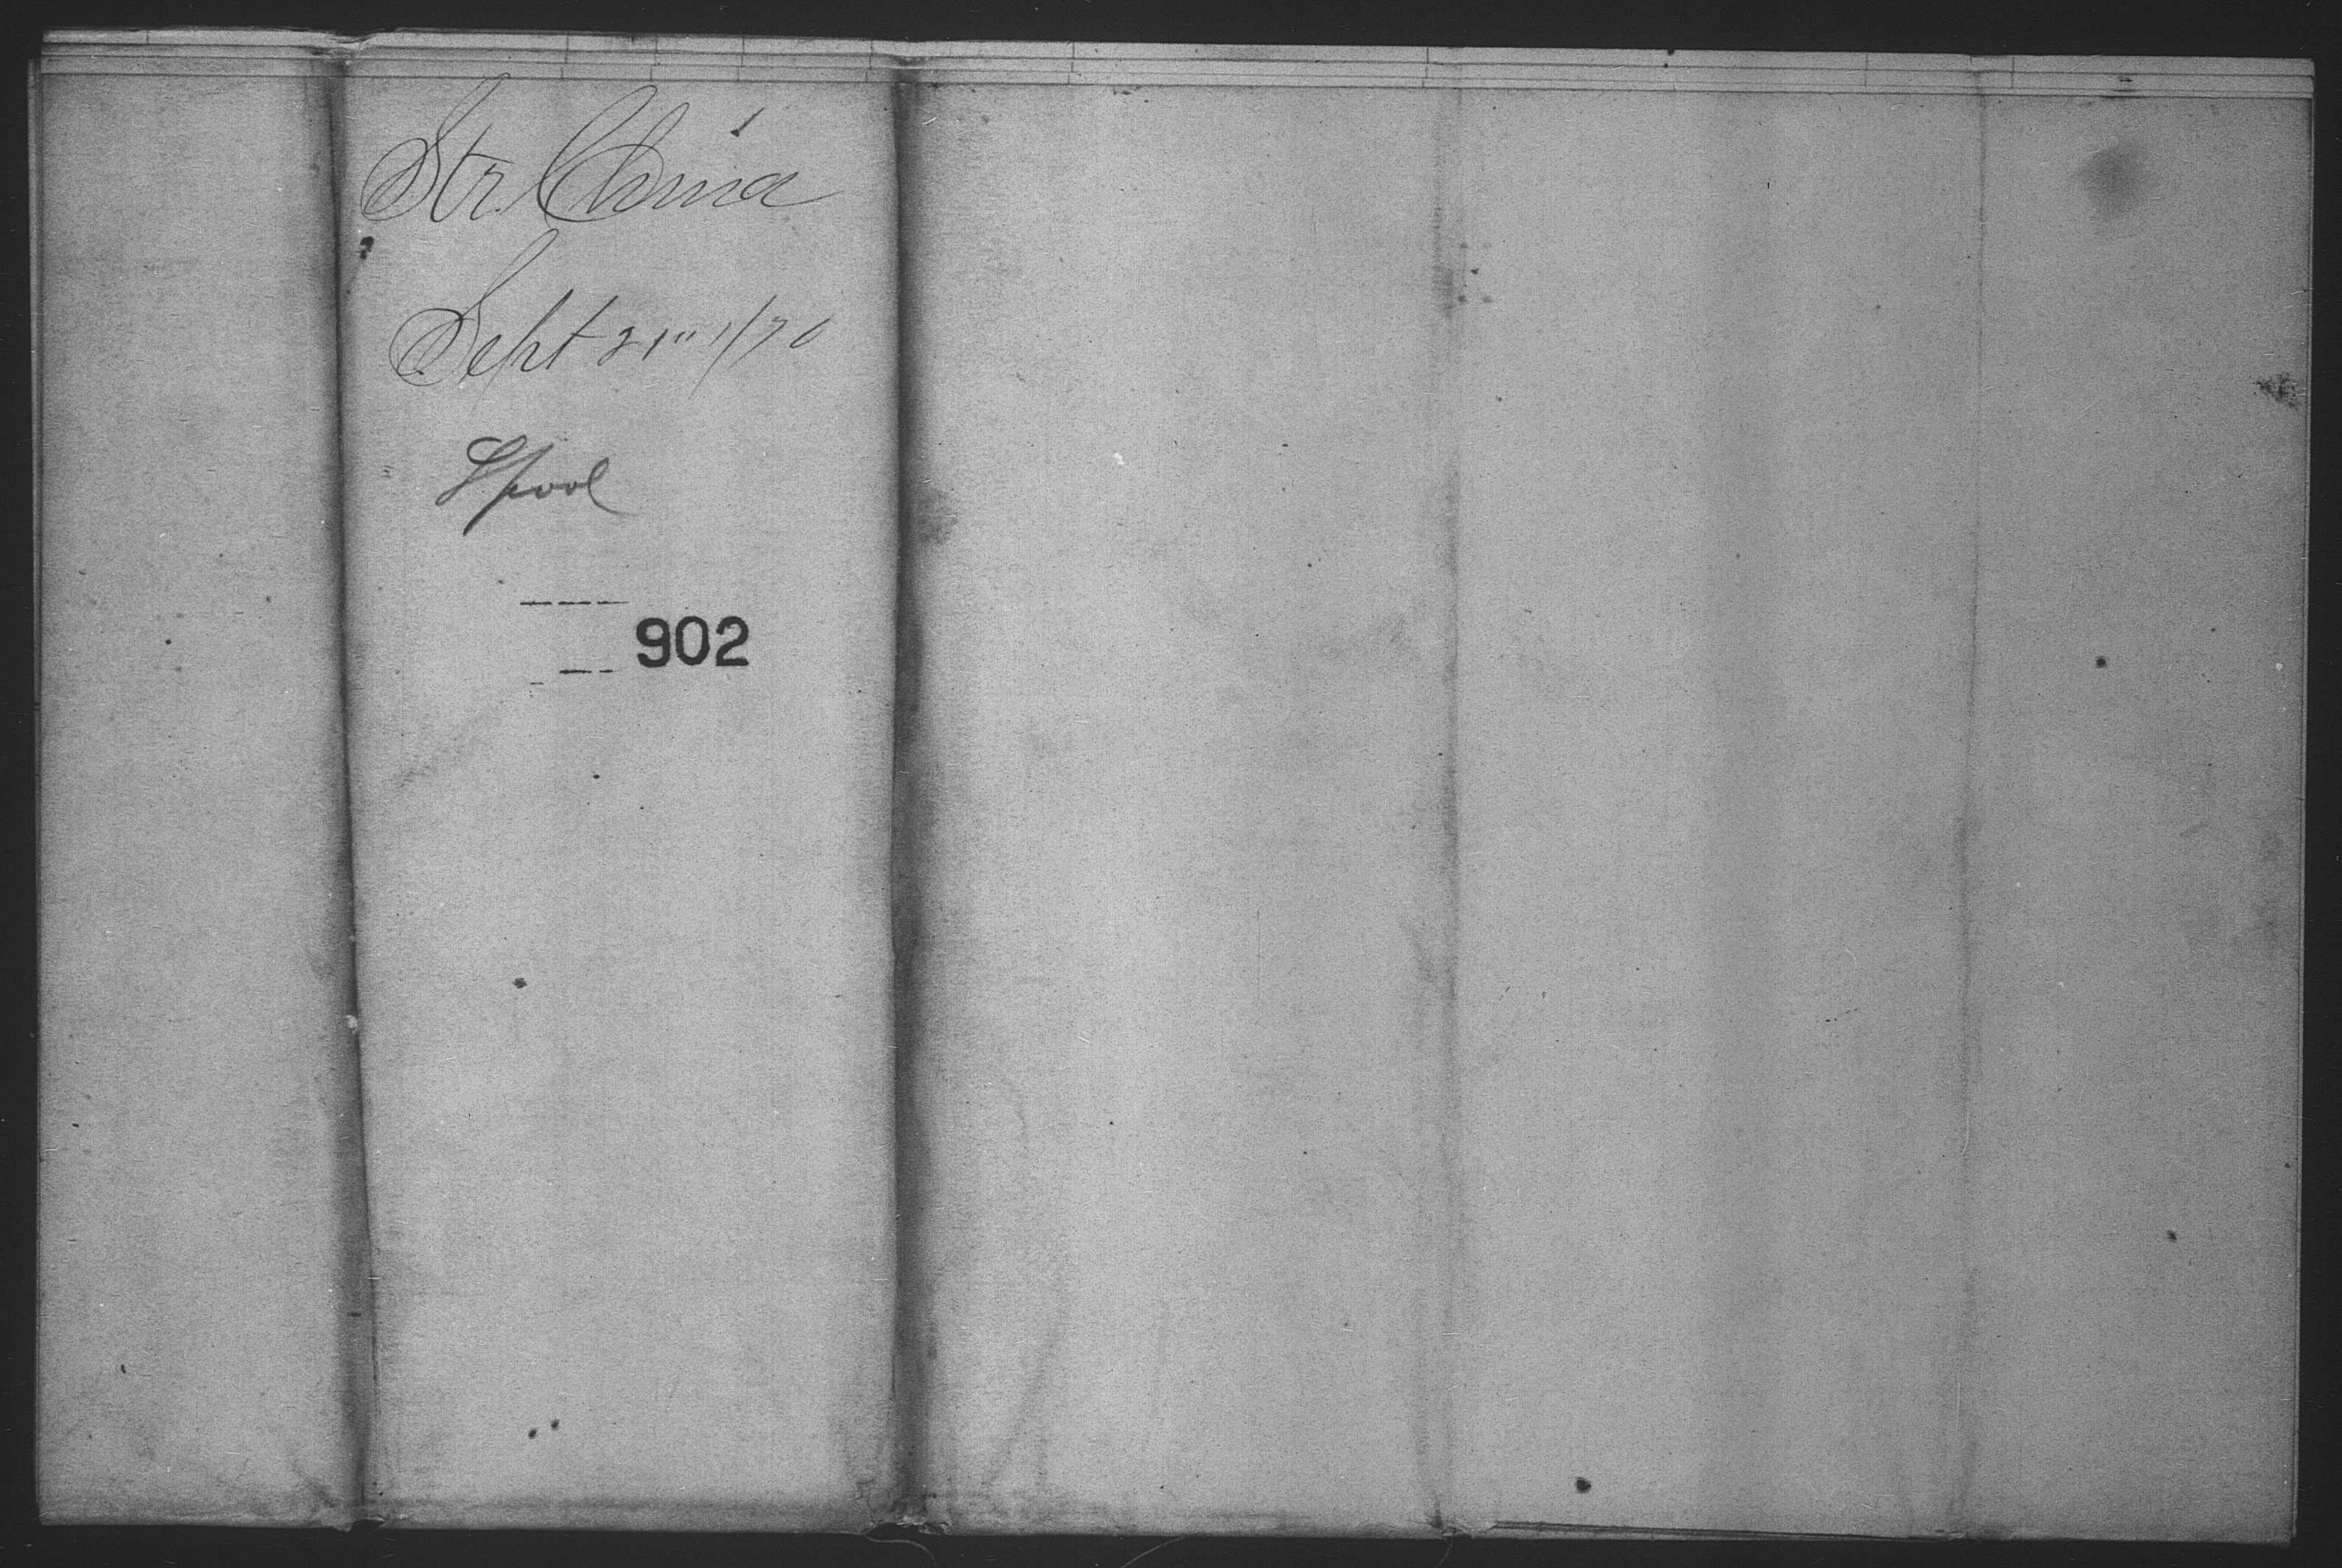 Str. China
Sept 21" 1/70
L'pool
902